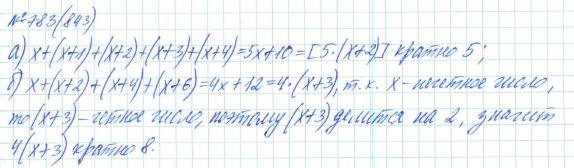 №783(843)
а) x+(x+1)+(x+2)+(x+3)+(x+4)=5x+10=[5·(x+2)] кратно 5;
б) x+(x+2)+(x+4)+(x+6)=4x+12=4·(x+3), т.к. x-нечетное число,
то (x+3)-четное число, поэтому (x+3) делится на 2, значит
4(x+3) кратно 8.